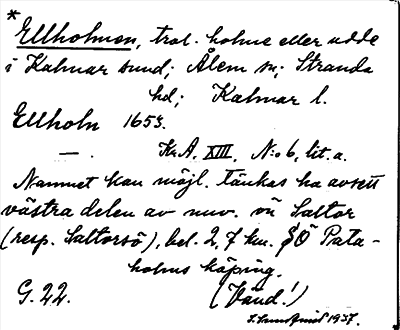 *Ellholmen, trol. holme eller udde
i Kalmar sund; Ålem sn; Stranda
hd; Kalmar l.
Ellholm 1653.
—. Kr.A. XIII. N:o 6, lit. a.
Namnet kan möjl. tänkas ha avsett
västra delen av nuv. ön Saltor
(resp. Saltorsö), bel. 2,7 km. SÖ Pata-
holms köping.
G. 22. (Vänd!)
1937.